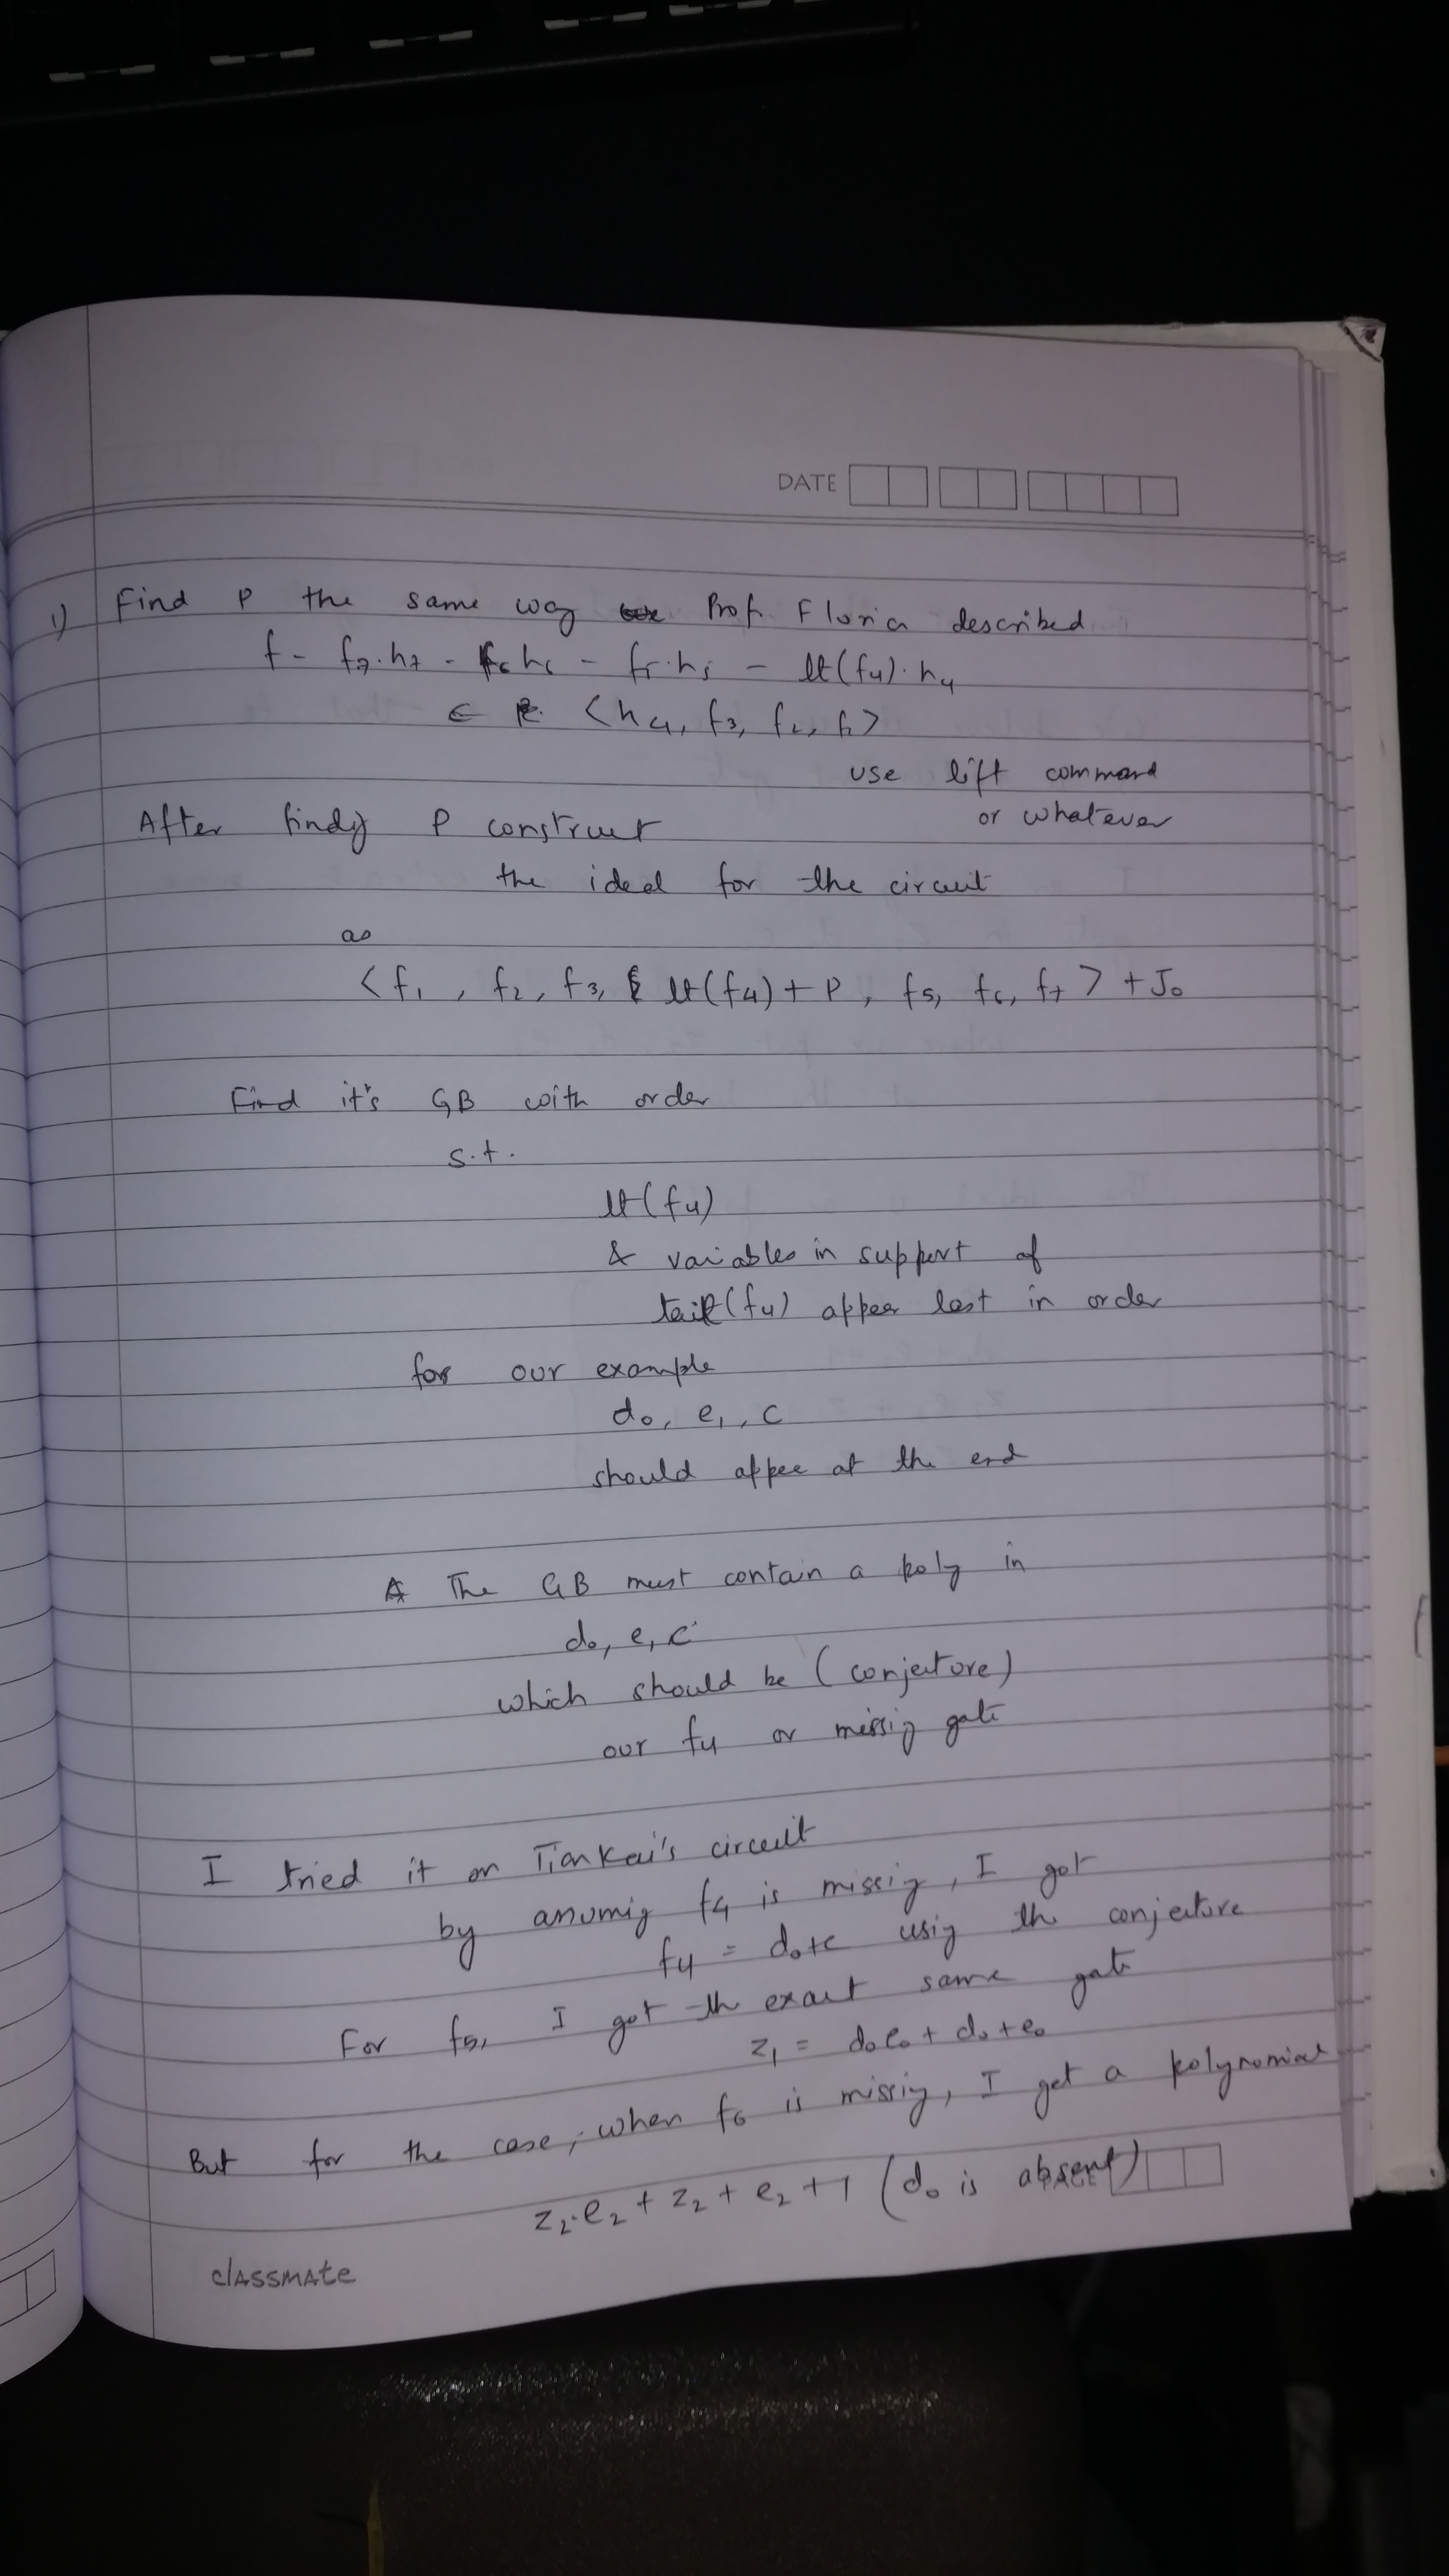 DATE
1) Find P the same way Prof. Floria described
f - f7.h7 - f6 h6 - f5.h5 - lt(f4).h4
∈ <h4, f3, f2, f1>
use lift command
or whatever
After findig P construct
the ideal for the circuit
as
<f1, f2, f3, lt(f4)+P, f5, f6, f7> + J0
Find it's GB with order
s.t.
lt(f4)
& variables in support of
tail(f4) appear last in order
for our example
d0, e1, c
should appee at the end
The GB must contain a poly in
d0, e, c
which should be (conjecture)
our f4 or missig gate
I tried it on Tiankai's circuit
by assumig f4 is missig, I got
f4 = d0+c usig the conjecture
For f5, I got the exact same gate
z1 = d0e0 + d0+e0
But for the case, when f6 is missig, I get a polynomial
z2.e2 + z2 + e2 + 1 (d0 is absent)
classmate